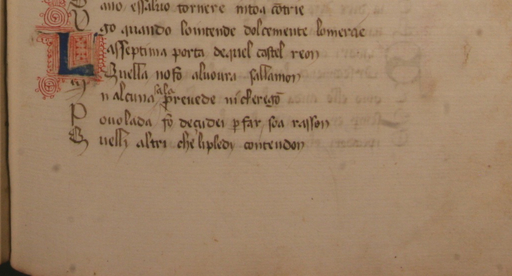 ano essalvo tornere nitoa cōtrie
go quando lointende dolcemente lomercie
Lasseptima porta dequel castel reon
Quella nosō alvoura sallamon
n alcuna sala prevede ni cheregō
P ovolada fo decudei p far sea rasson
Quelli altri che lipledi contendon